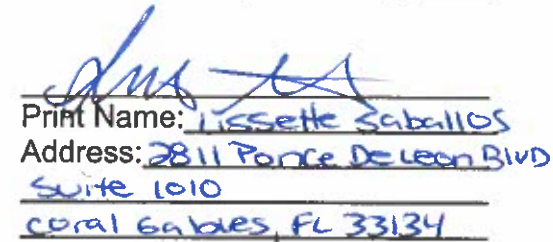 Print Name: Lissette Saballos
Address: 2811 Ponce De Leon BlvD
Suite 1010
Coral Gables, FL 33134